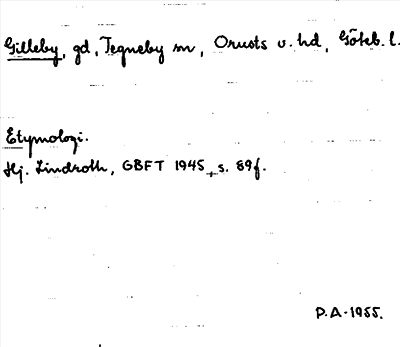 Gilleby, gd, Tegneby sn, Orusts v. hd, Göteb. l.
Etymologi.
Hj. Lindroth, GBFT 1945, s. 89f.
P.A. 1955.